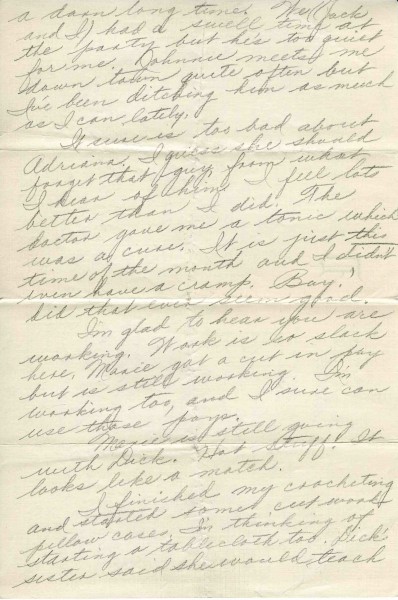 a darn long time. We (Jack
and I) had a swell time at
the party but he's too quiet
for me. Johnnie meets me
down town quite often but
I've been ditching him as much
as I can lately.
It sure is too bad about
Adriana. I guess she should
forget that guy, from what
I hear of him. I feel lots
better than I did. The
doctor gave me a tonic which
was a cure. It is just this
time of the month and I didn't
even have a cramp. Boy!
did that ever seem good.
I'm glad to hear you are
working. Work is so slack
here. Marie got a cut in pay
but is still working. I'm
working too, and I sure can
use those
Marie is still going
with Dick. Hot Stuff. It
looks like a match.
I finished my crocheting
and started some cut work
pillow cases. I'm thinking of
starting a tablecloth too. Dick's
sister said she would teach